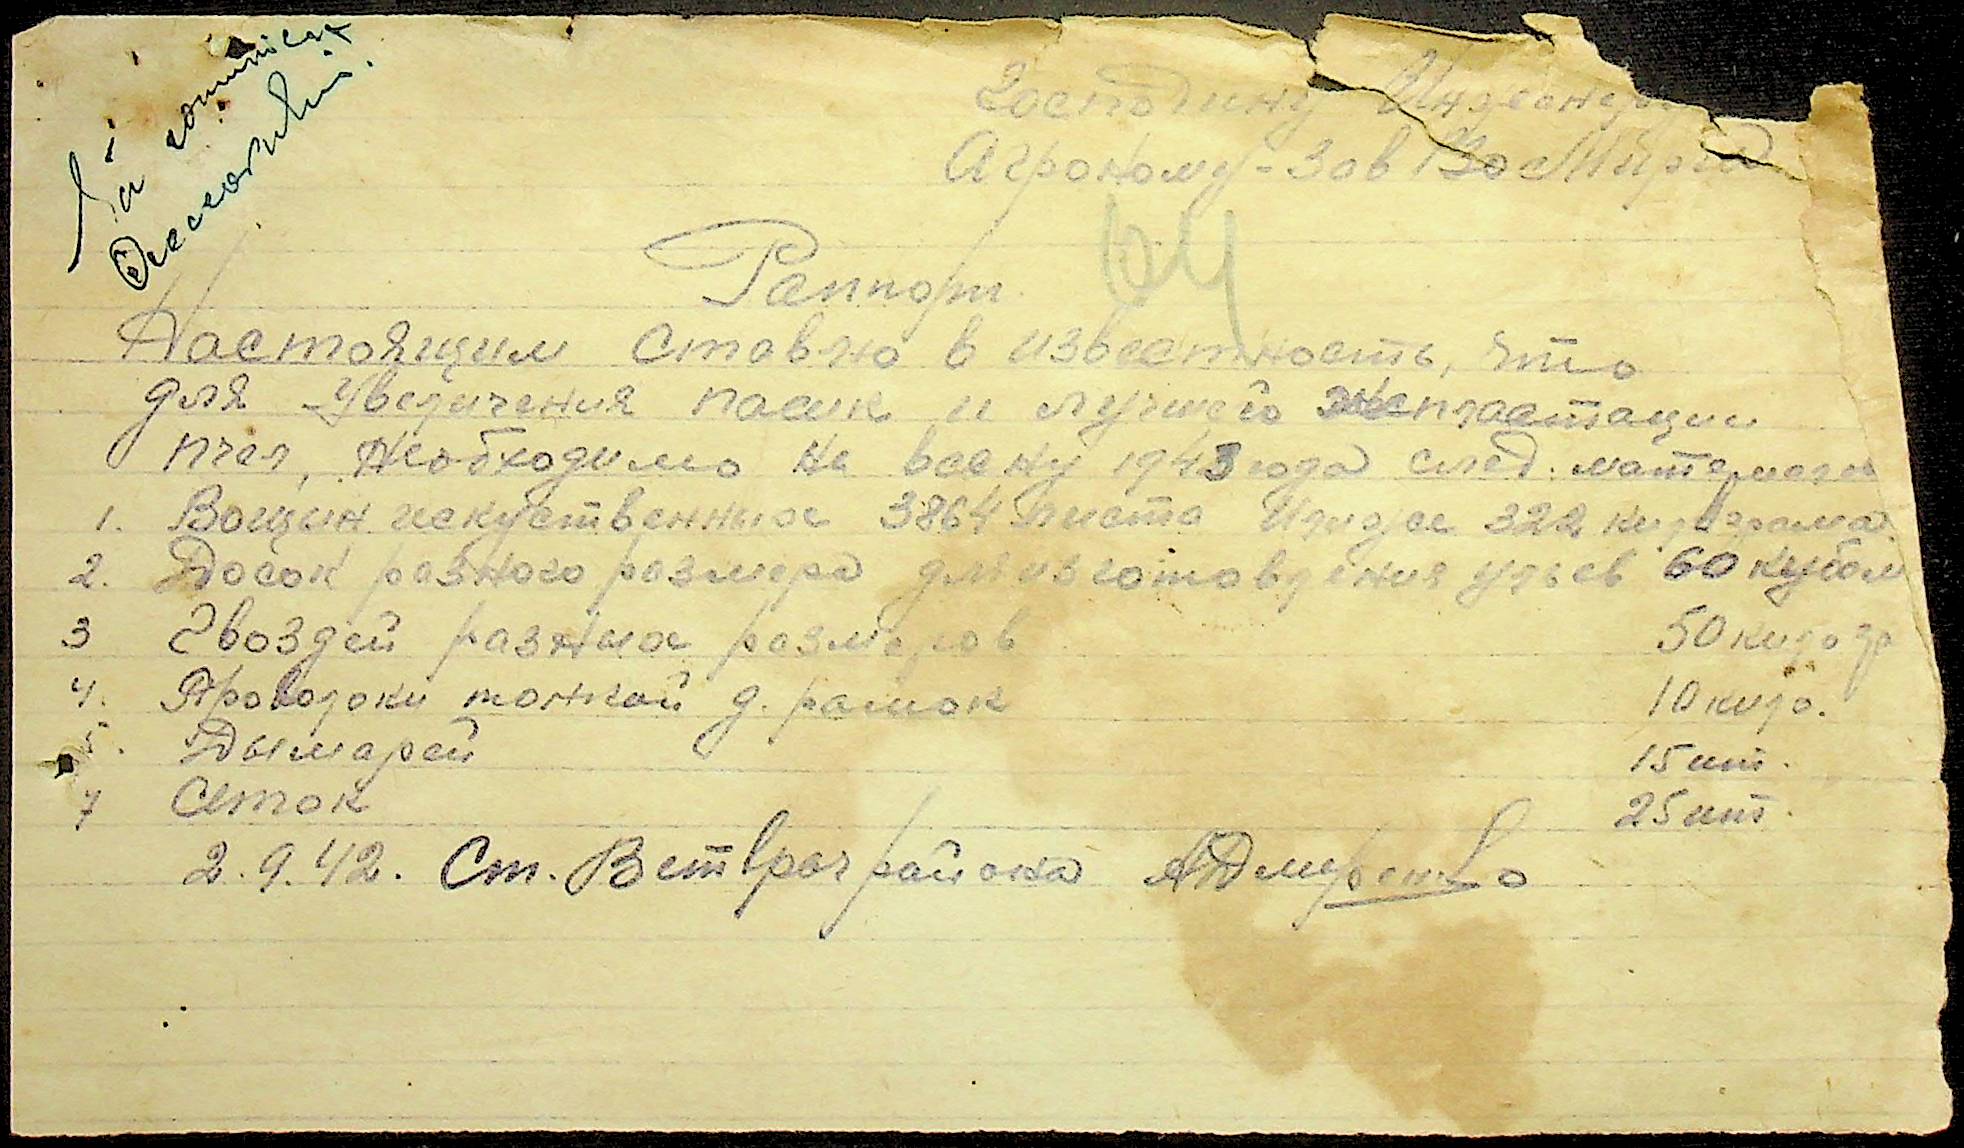 Господину Инженеру
Агроному - Зав
64
Раппорт
Настоящим ставлю в известность, что
для увеличения пасик и лучшей эксплоатации
пчел, необходимо на весну 1943 года след. материала
1. Вощин искуственных 3864 листа Или же 322 килограма
2. Досок разного размера для изготовления ульев 60 кубом
3 Гвоздей разных размеров 50 килогр
4. Проволоки тонкой д. рамок 10 кило.
5. Дымарей 15 шт.
7 Сеток 25 шт.
2.9.42. Ст. Ветврач района